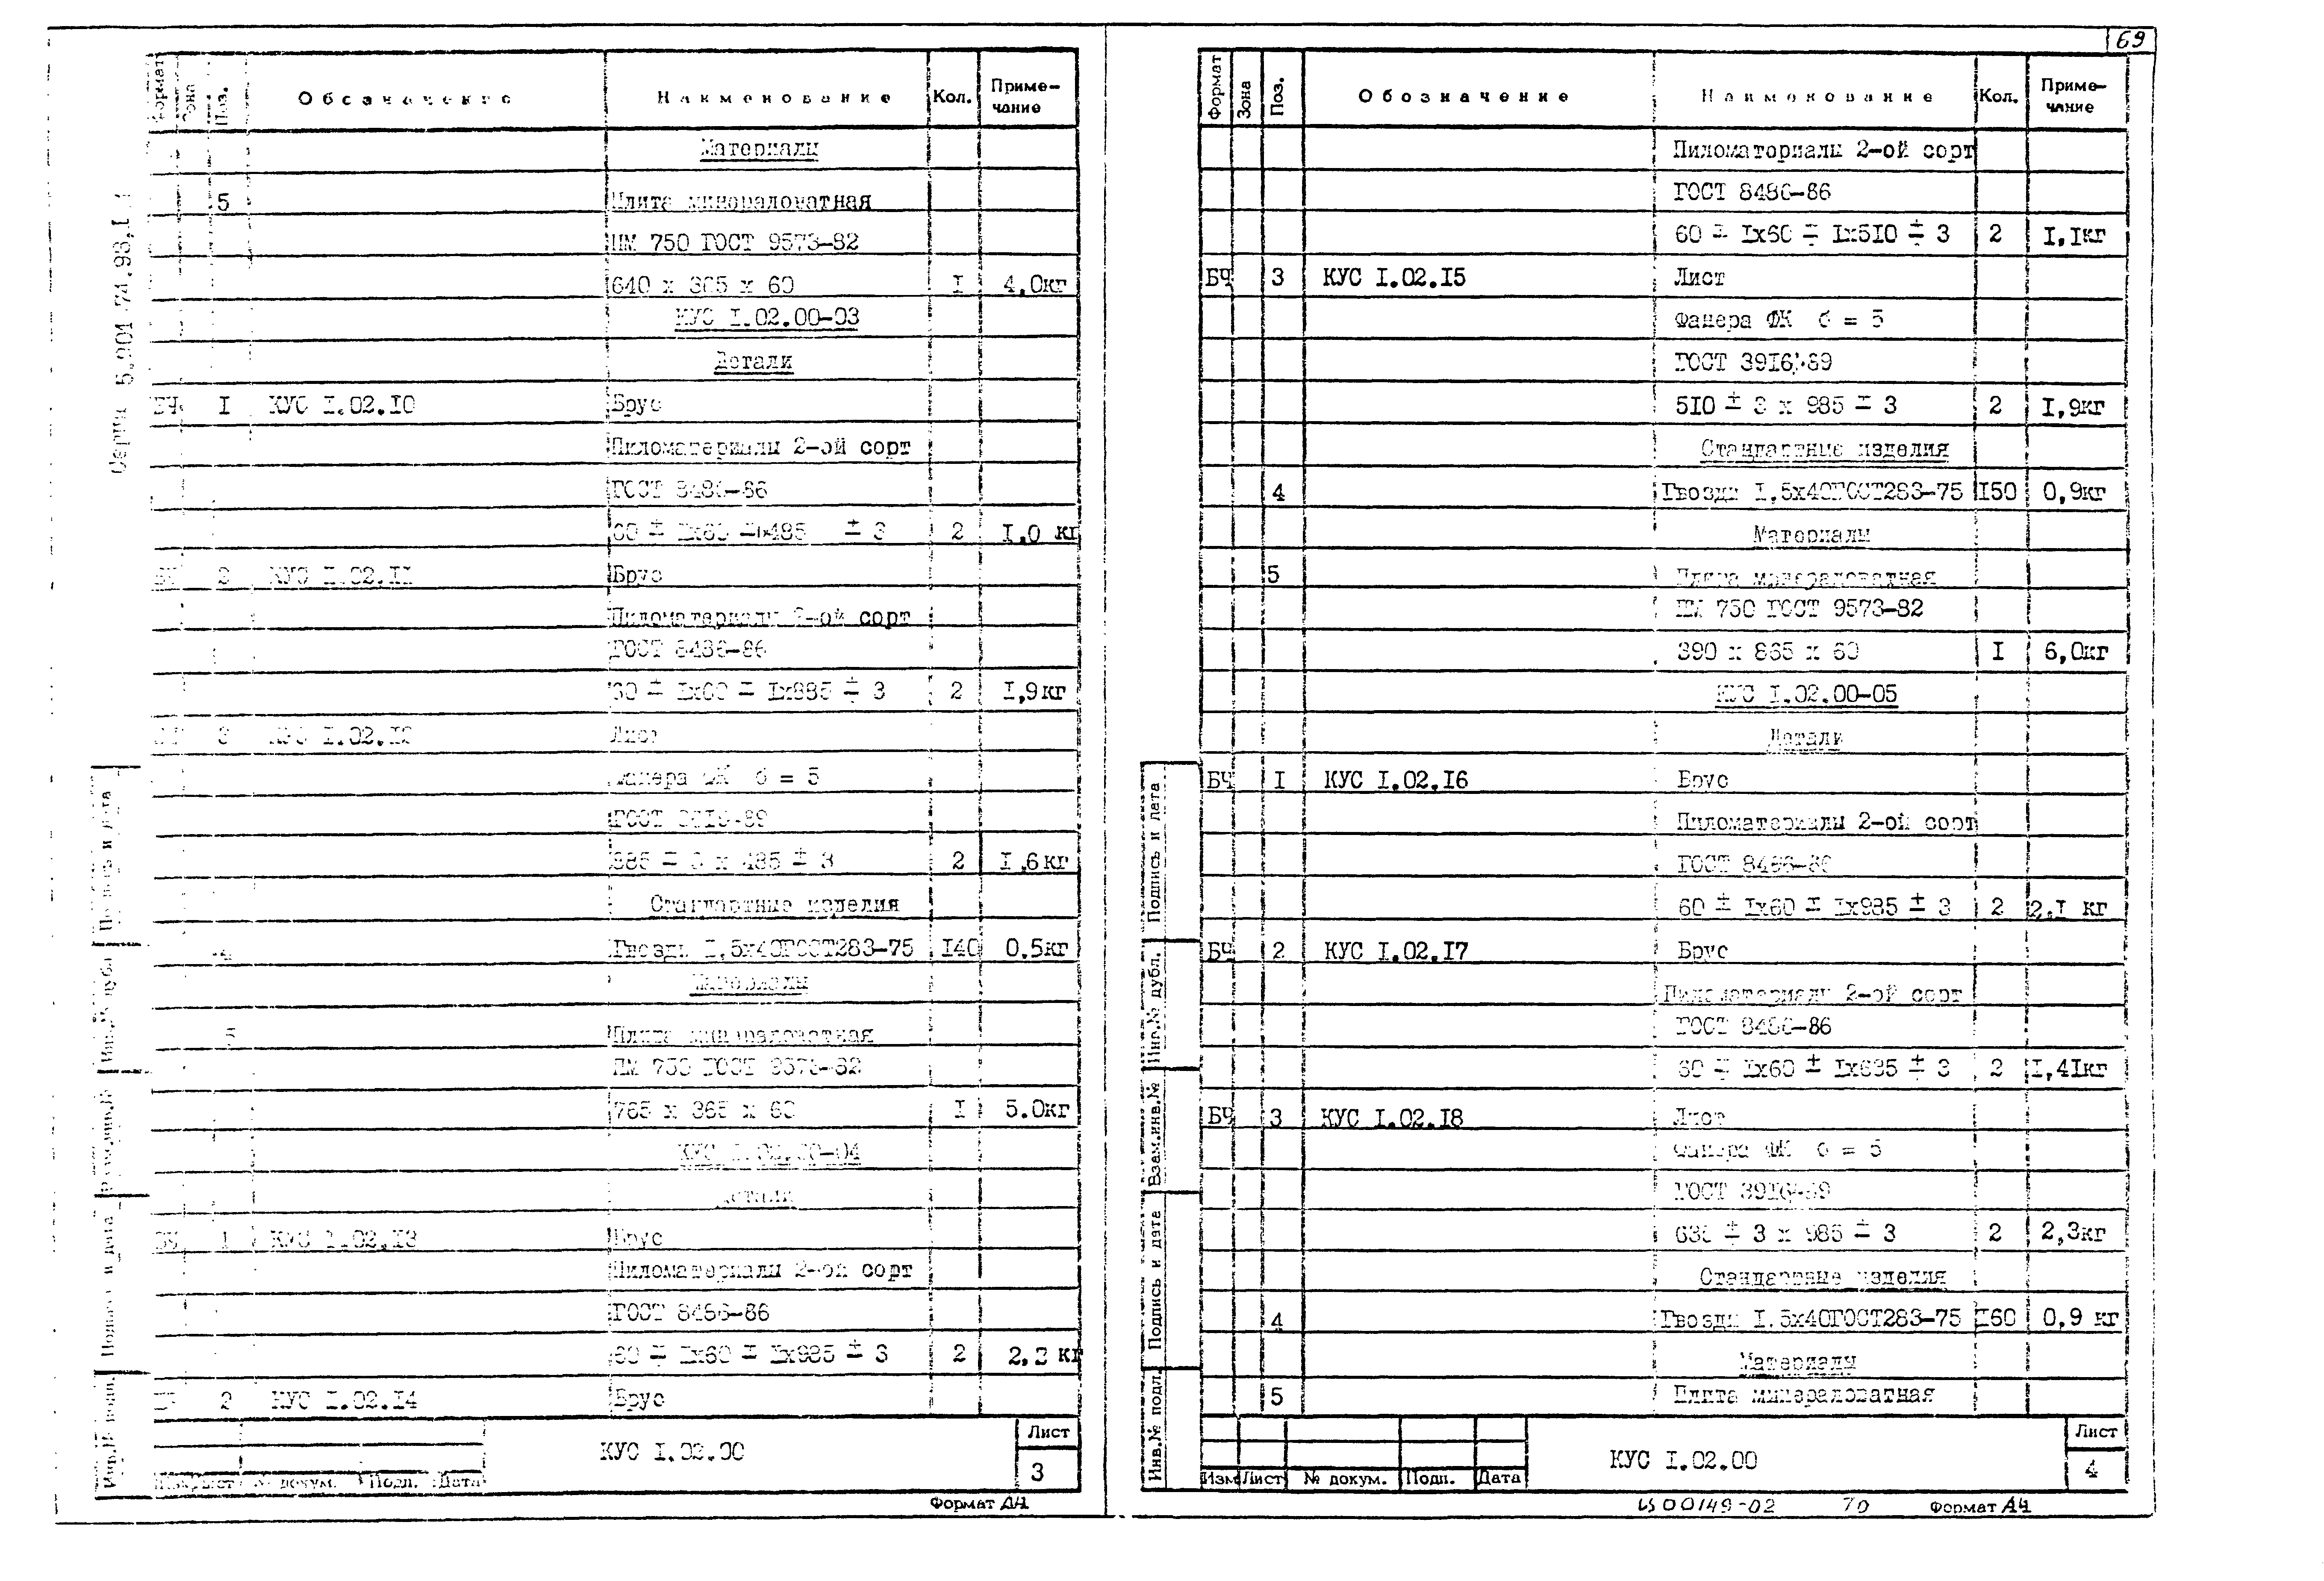 69
Серия 5.901
Формат Зона Поз. Обозначение Наименование Кол. Приме-
чание
Материалы
5 Плита минераловатная
ПМ 750 ГОСТ 9573-82
640 х 365 х 60 I 4,0кг
КУС I.02.00-03
Детали
БЧ I КУС I.02.I0 Брус
Пиломатериалы 2-ой сорт
ГОСТ 8486-86
60 ± Iх60 ± Iх485 ± 3 2 I.0 кг
БЧ 2 КУС I.02.II Брус
Пиломатериалы 2-ой сорт
ГОСТ 8486-86
60 ± Iх60 ± Iх885 ± 3 2 I,9кг
БЧ 3 КУС I.02.I2 Лист
Фанера ФК б = 5
ГОСТ 3916-89
885 ± 3 х 485 ± 3 2 I,6кг
Стандартные изделия
4 Гвозди I,5х40ГОСТ283-75 I40 0.5кг
Материалы
5 Плита минераловатная
ПМ 750 ГОСТ 9573-82
765 х 365 х 60 I 5.0кг
КУС I.02.00-04
Детали
БЧ I КУС I.02.I3 Брус
Пиломатериалы 2-ой сорт
ГОСТ 8486-86
60 ± Iх60 ± Iх985 ± 3 2 кг
БЧ 2 КУС I.02.I4 Брус
КУС I.02.00
Лист
3
Изм Лист № докум. Подп. Дата
Формат А4
Подпись и дата
Инв.№ дубл.
Взам.инв.№
Подпись и дата
Инв.№ подл.
Формат Зона Поз. Обозначение Наименование Кол. Приме-
чание
Пиломатериалы 2-ой сорт
ГОСТ 8486-86
60 ± Iх60 ± Iх5I0 ± 3 2 I,Iкг
БЧ 3 КУС I.02.I5 Лист
Фанера ФК б = 5
ГОСТ 39I6-89
5I0 ± 3 х 985 ± 3 2 I,9кг
Стандартные изделия
4 Гвозди I,5х40ГОСТ283-75 I50 0,9кг
Материалы
5 Плита минераловатная
ПМ 750 ГОСТ 9573-82
390 х 865 х 60 I 6,0кг
КУС I.02.00-05
Детали
БЧ I КУС I.02.I6 Брус
Пиломатериалы 2-ой сорт
ГОСТ 8486-86
60 ± Iх60 ± Iх985 ± 3 2 2,I кг
БЧ 2 КУС I.02.I7 Брус
Пиломатериалы 2-ой сорт
ГОСТ 8486-86
60 ± Iх60 ± Iх635 ± 3 2 I,4Iкг
БЧ 3 КУС I.02.I8 Лист
Фанера ФК б = 5
ГОСТ 39I6-89
635 ± 3 х 985 ± 3 2 2,3кг
Стандартные изделия
4 Гвозди I.5х40ГОСТ283-75 I60 0,9 кг
Материалы
5 Плита минераловатная
КУС I.02.00
Лист
4
Изм Лист № докум. Подп. Дата
00149-02 70 Формат А4
Подпись и дата
Инв.№ дубл.
Взам.инв.№
Подпись и дата
Инв.№ подл.